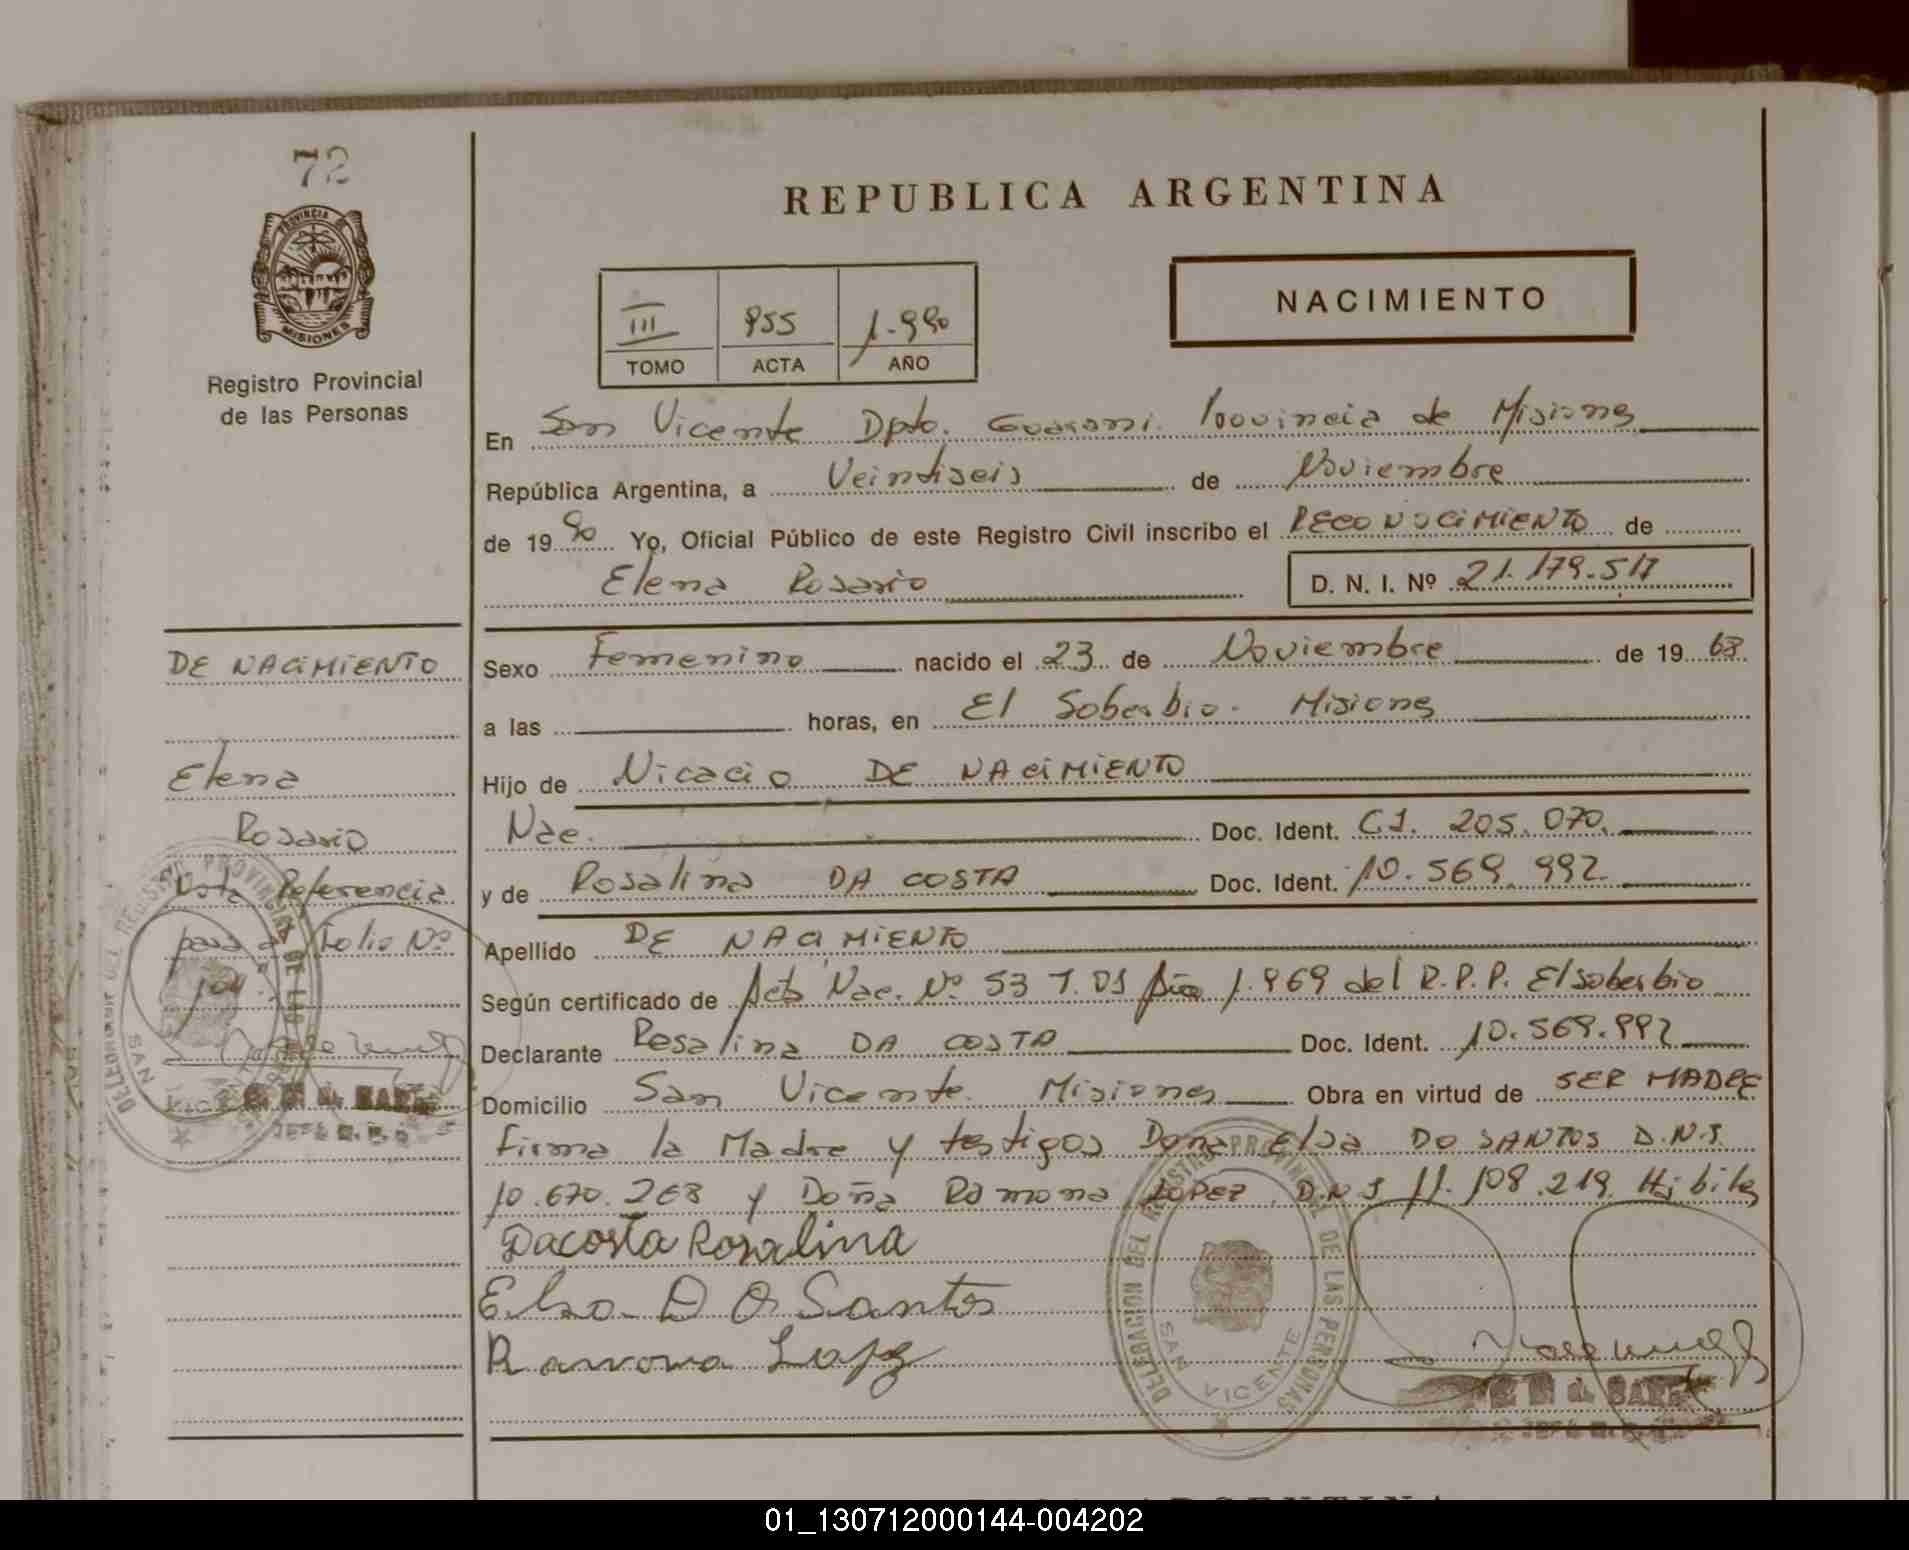 72
PROVINCIA DE
MISIONES
Registro Provincial
de las Personas
REPUBLICA ARGENTINA
NACIMIENTO
III 955 1.990
TOMO ACTA AÑO
En San Vicente Dpto. Guarani. Provincia de Misiones
República Argentina, a Veintiseis de Noviembre
de 1990 Yo, Oficial Público de este Registro Civil inscribo el RECONOCIMIENTO de
Elena Rosario
D. N. I. Nº 21.179.517
Sexo Femenino nacido el 23 de Noviembre de 1968
a las horas, en El Soberbio. Misiones
Hijo de Nicacio DE NACIMIENTO
Nac. Doc. Ident. C.I. 205.070.
y de Rosalina DA COSTA Doc. Ident. 10.569.992
Apellido DE NACIMIENTO
Según certificado de Acta Nac. Nº 53 T. 01 Año 1.969 del R.P.P. El soberbio
Declarante Rosalina DA COSTA Doc. Ident. 10.569.992
Domicilio San Vicente. Misiones Obra en virtud de SER MADRE
Firma la Madre y testigos Doña Elsa DO SANTOS D.N.I.
10.670.268 y Doña Ramona LOPEZ D.N.I 11.108.219 Hábiles
Dacosta Rosalina
Elsa D O Santos
Ramona Lopez
DELEGACION DEL REGISTRO PROVINCIAL DE LAS PERSONAS
SAN VICENTE
DE NACIMIENTO
Elena
Rosario
Nota Referencia
pasa a Folio Nº
DELEGACION DEL REGISTRO PROVINCIAL DE LAS
SAN
01_130712000144-004202